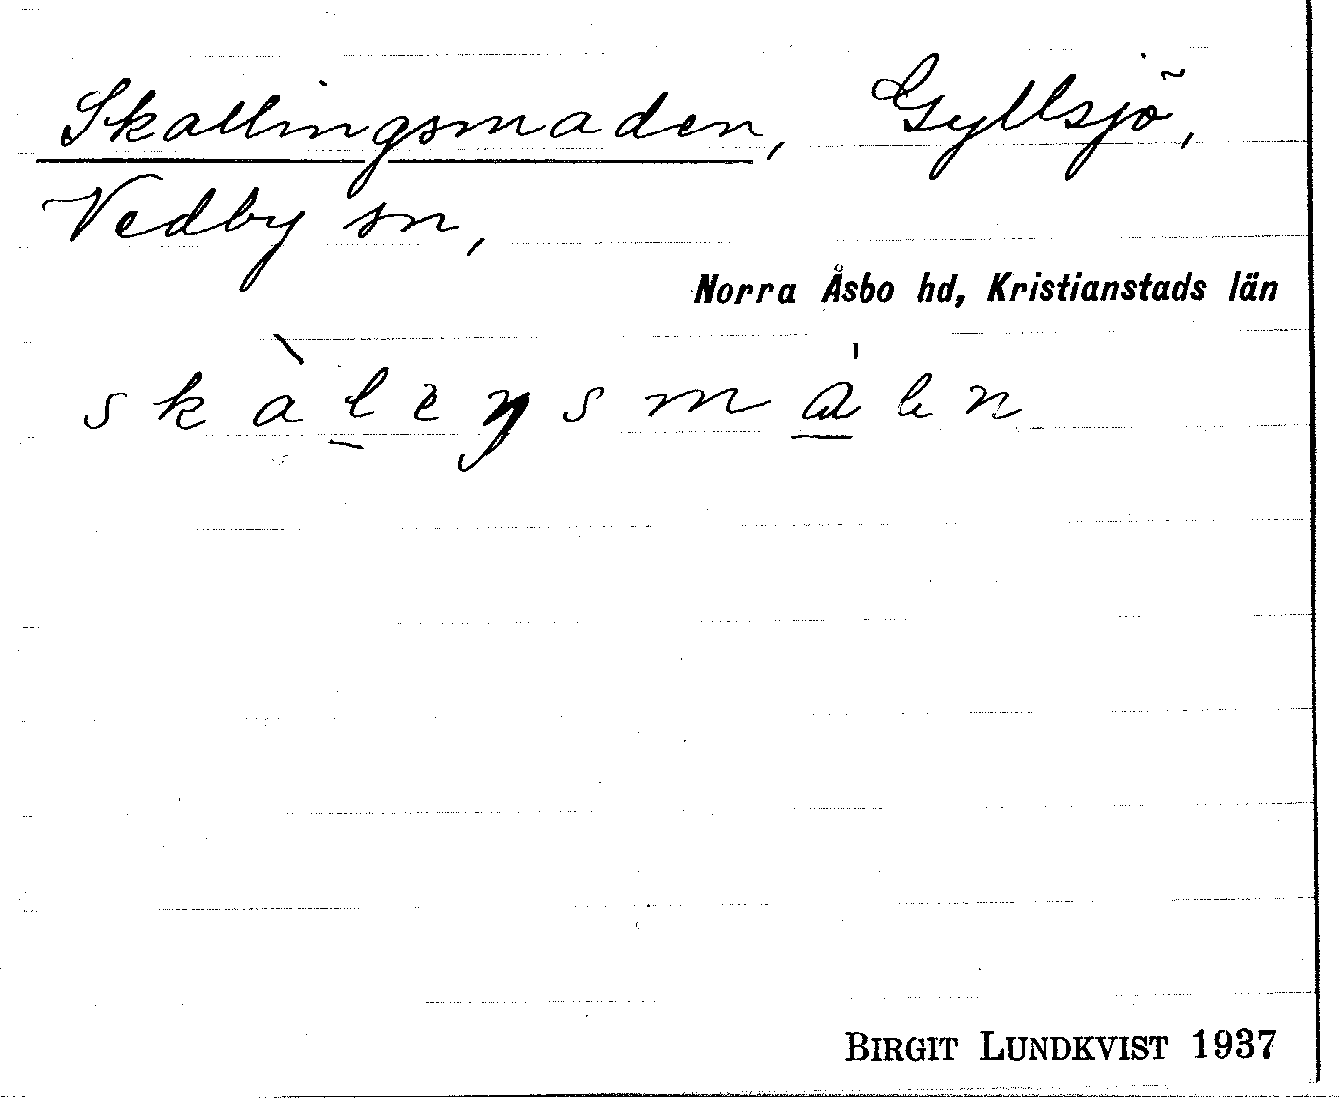 Skallingsmaden, Gyllsjö,
Vedby sn,
Norra Åsbo hd, Kristianstads län
BIRGIT LUNDKVIST 1937